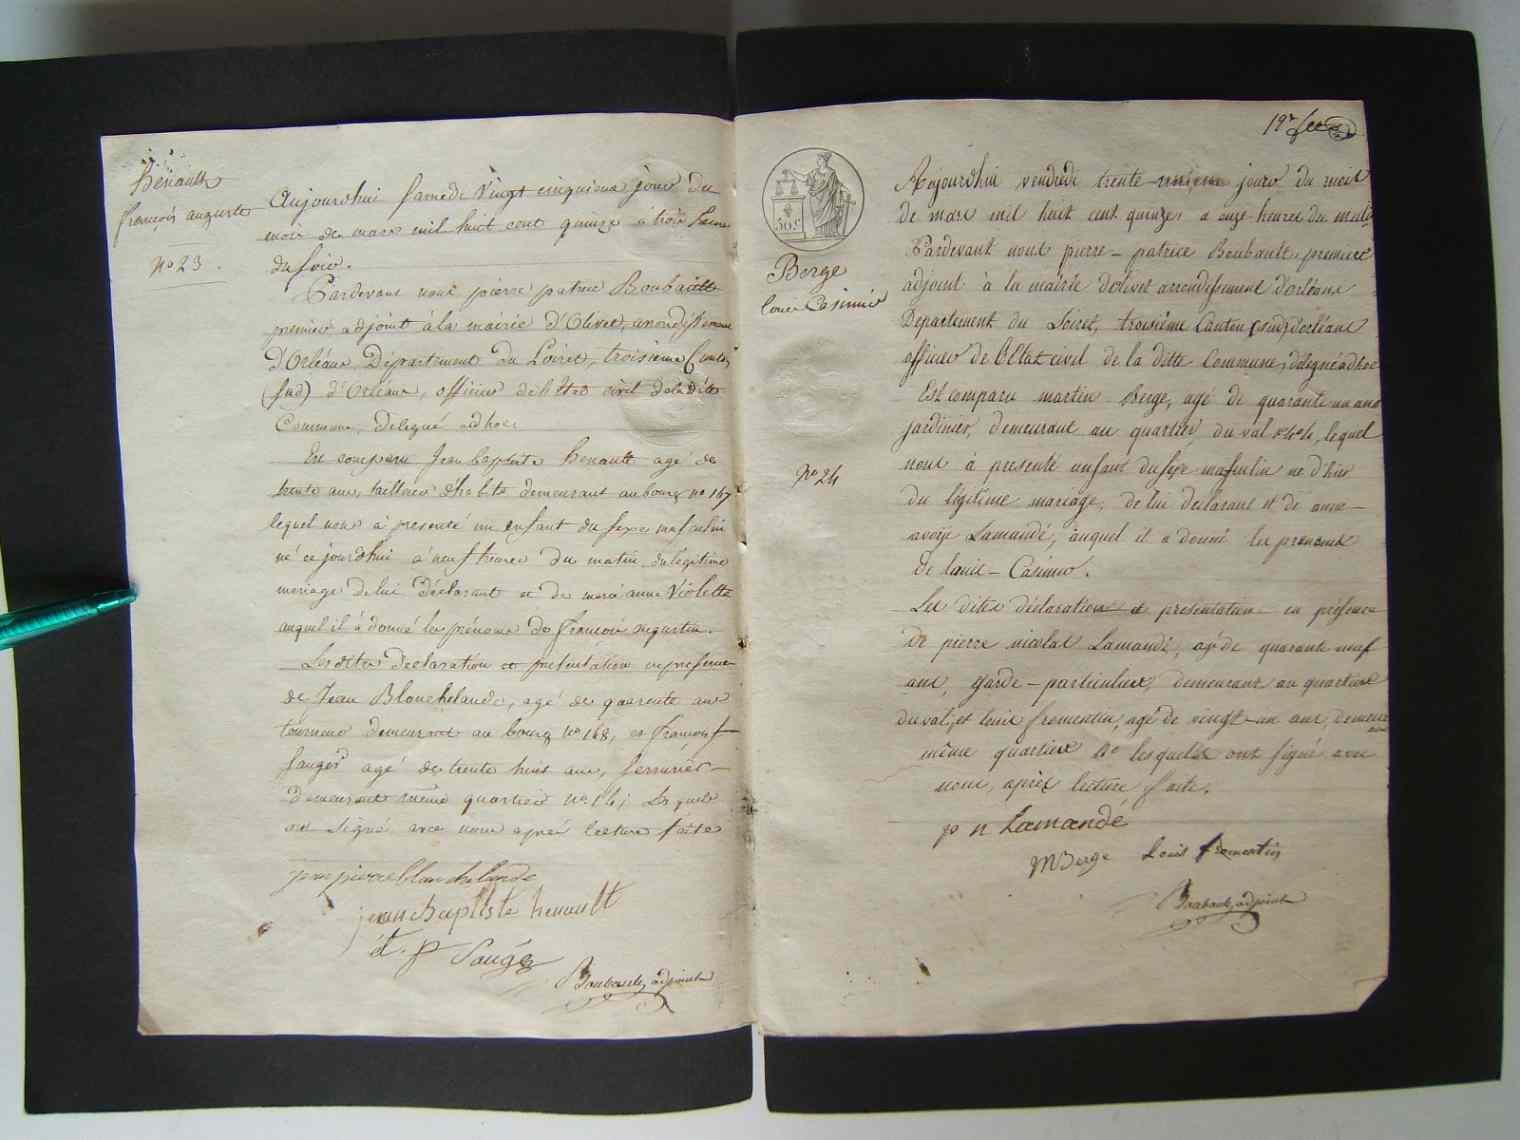 henault
françois auguste
n° 23.
Aujourdhui Samedi vingt cinquieme jour du
mois de mars mil huit cent quinze à trois heure
du soir.
Pardevant nous pierre patrice Boubault
premier adjoint à la mairie d'Olivet, arrondissement
d'Orléans Département du Loiret, troisieme Canton
(sud) d'Orléans, officier de l'état civil de la dite
Commune, delegué adhoc
Est comparu Jean baptiste henault agé de
trente ans, tailleur d'habits demeurant au bourg n° 167
lequel nous à presenté un enfant du sexe masculin
né ce jourdhui à neuf heures du matin du legitime
mariage de lui déclarant et de marie anne Violette
auquel il à donné les prénoms de françois augustin.
Les dites declaration et présentation en presence
de Jean Blanchelande, agé de quarente ans
tourneur demeurant au bourg n° 168, et françois
Saugé agé de trente huit ans, serrurier
Demeurant même quartier n° 16; Lesquels
ont signé avec nous après lecture faite
jean pierre blanchelande
jean baptiste henault
et. p Saugé
Boubault, adjoint
19e feu
50 c
Berge
Louis Casimir
n° 24
Aujourdhui vendredi trente unieme jour du mois
de mars mil huit cent quinze, a onze heures du matin
Pardevant nous pierre - patrice Boubault, premier
adjoint à la mairie d'olivet arrondissement d'orléans
Département du Loiret, troisième Canton (sud) d'orléans
officier de l'Etat civil de la ditte Commune, delegué adhoc
Est comparu martin Berge, agé de quarante un ans
jardinier, demeurant au quartier du val lequel
nous à presenté un enfant du sexe masculin né d'hier
du légitime mariage, de lui declarant et de anne
avoye Lamandé, auquel il a donné les prenoms
de Louis - Casimir.
Les dites déclaration et presentation en présence
de pierre nicolas Lamandé, agé de quarante neuf
ans, garde - particulier, demeurant au quartier
du val, et louis fromentin, agé de vingt - un ans, demeurant
même quartier n° lesquels ont signé avec
nous, après lecture faite.
p n Lamandé
M Berge Louis fromentin
Boubault, adjoint